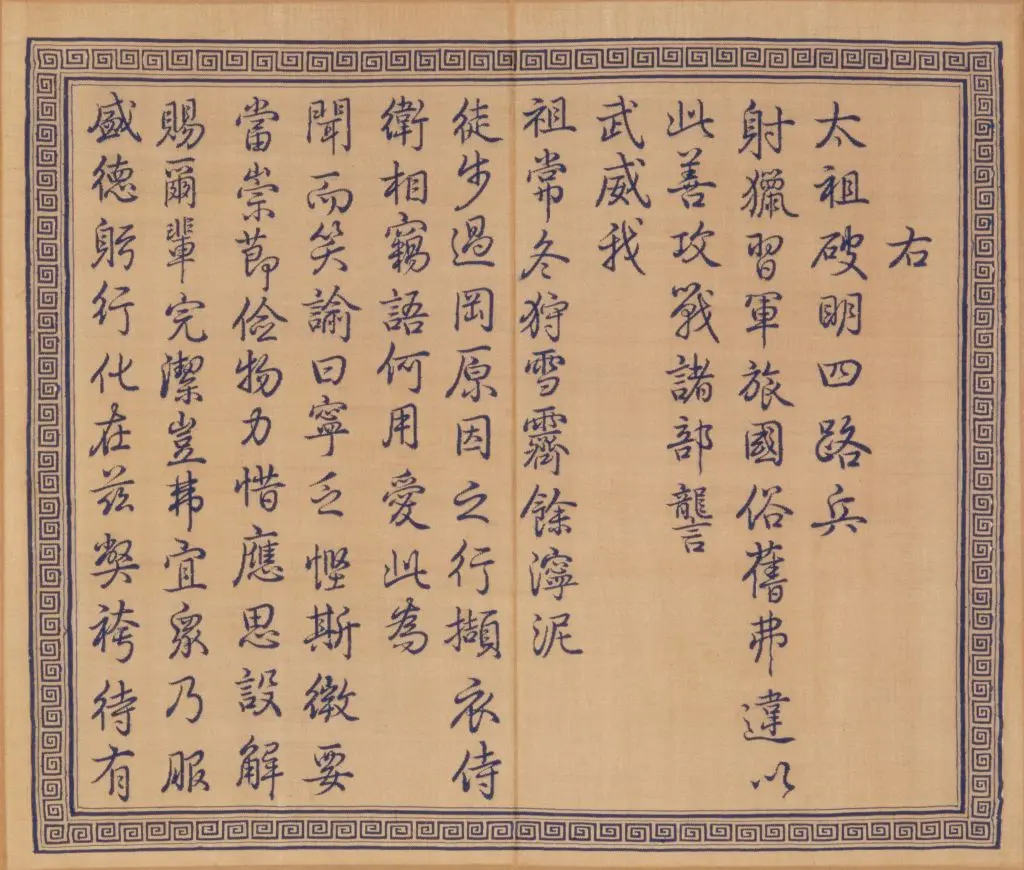 右
太祖破明四路兵
射獵習軍旅國俗舊弗違以
此善攻戰諸部讋
武威我
祖常冬狩雪霽餘濘泥
徒步過岡原因之行擷衣侍
衛相竊語何用愛此為
聞而笑諭曰寧乏慳斯徵要
當崇節儉物力惜應思設解
賜爾輩完潔豈弗宜眾乃服
盛德躬行化在茲獘袴待有